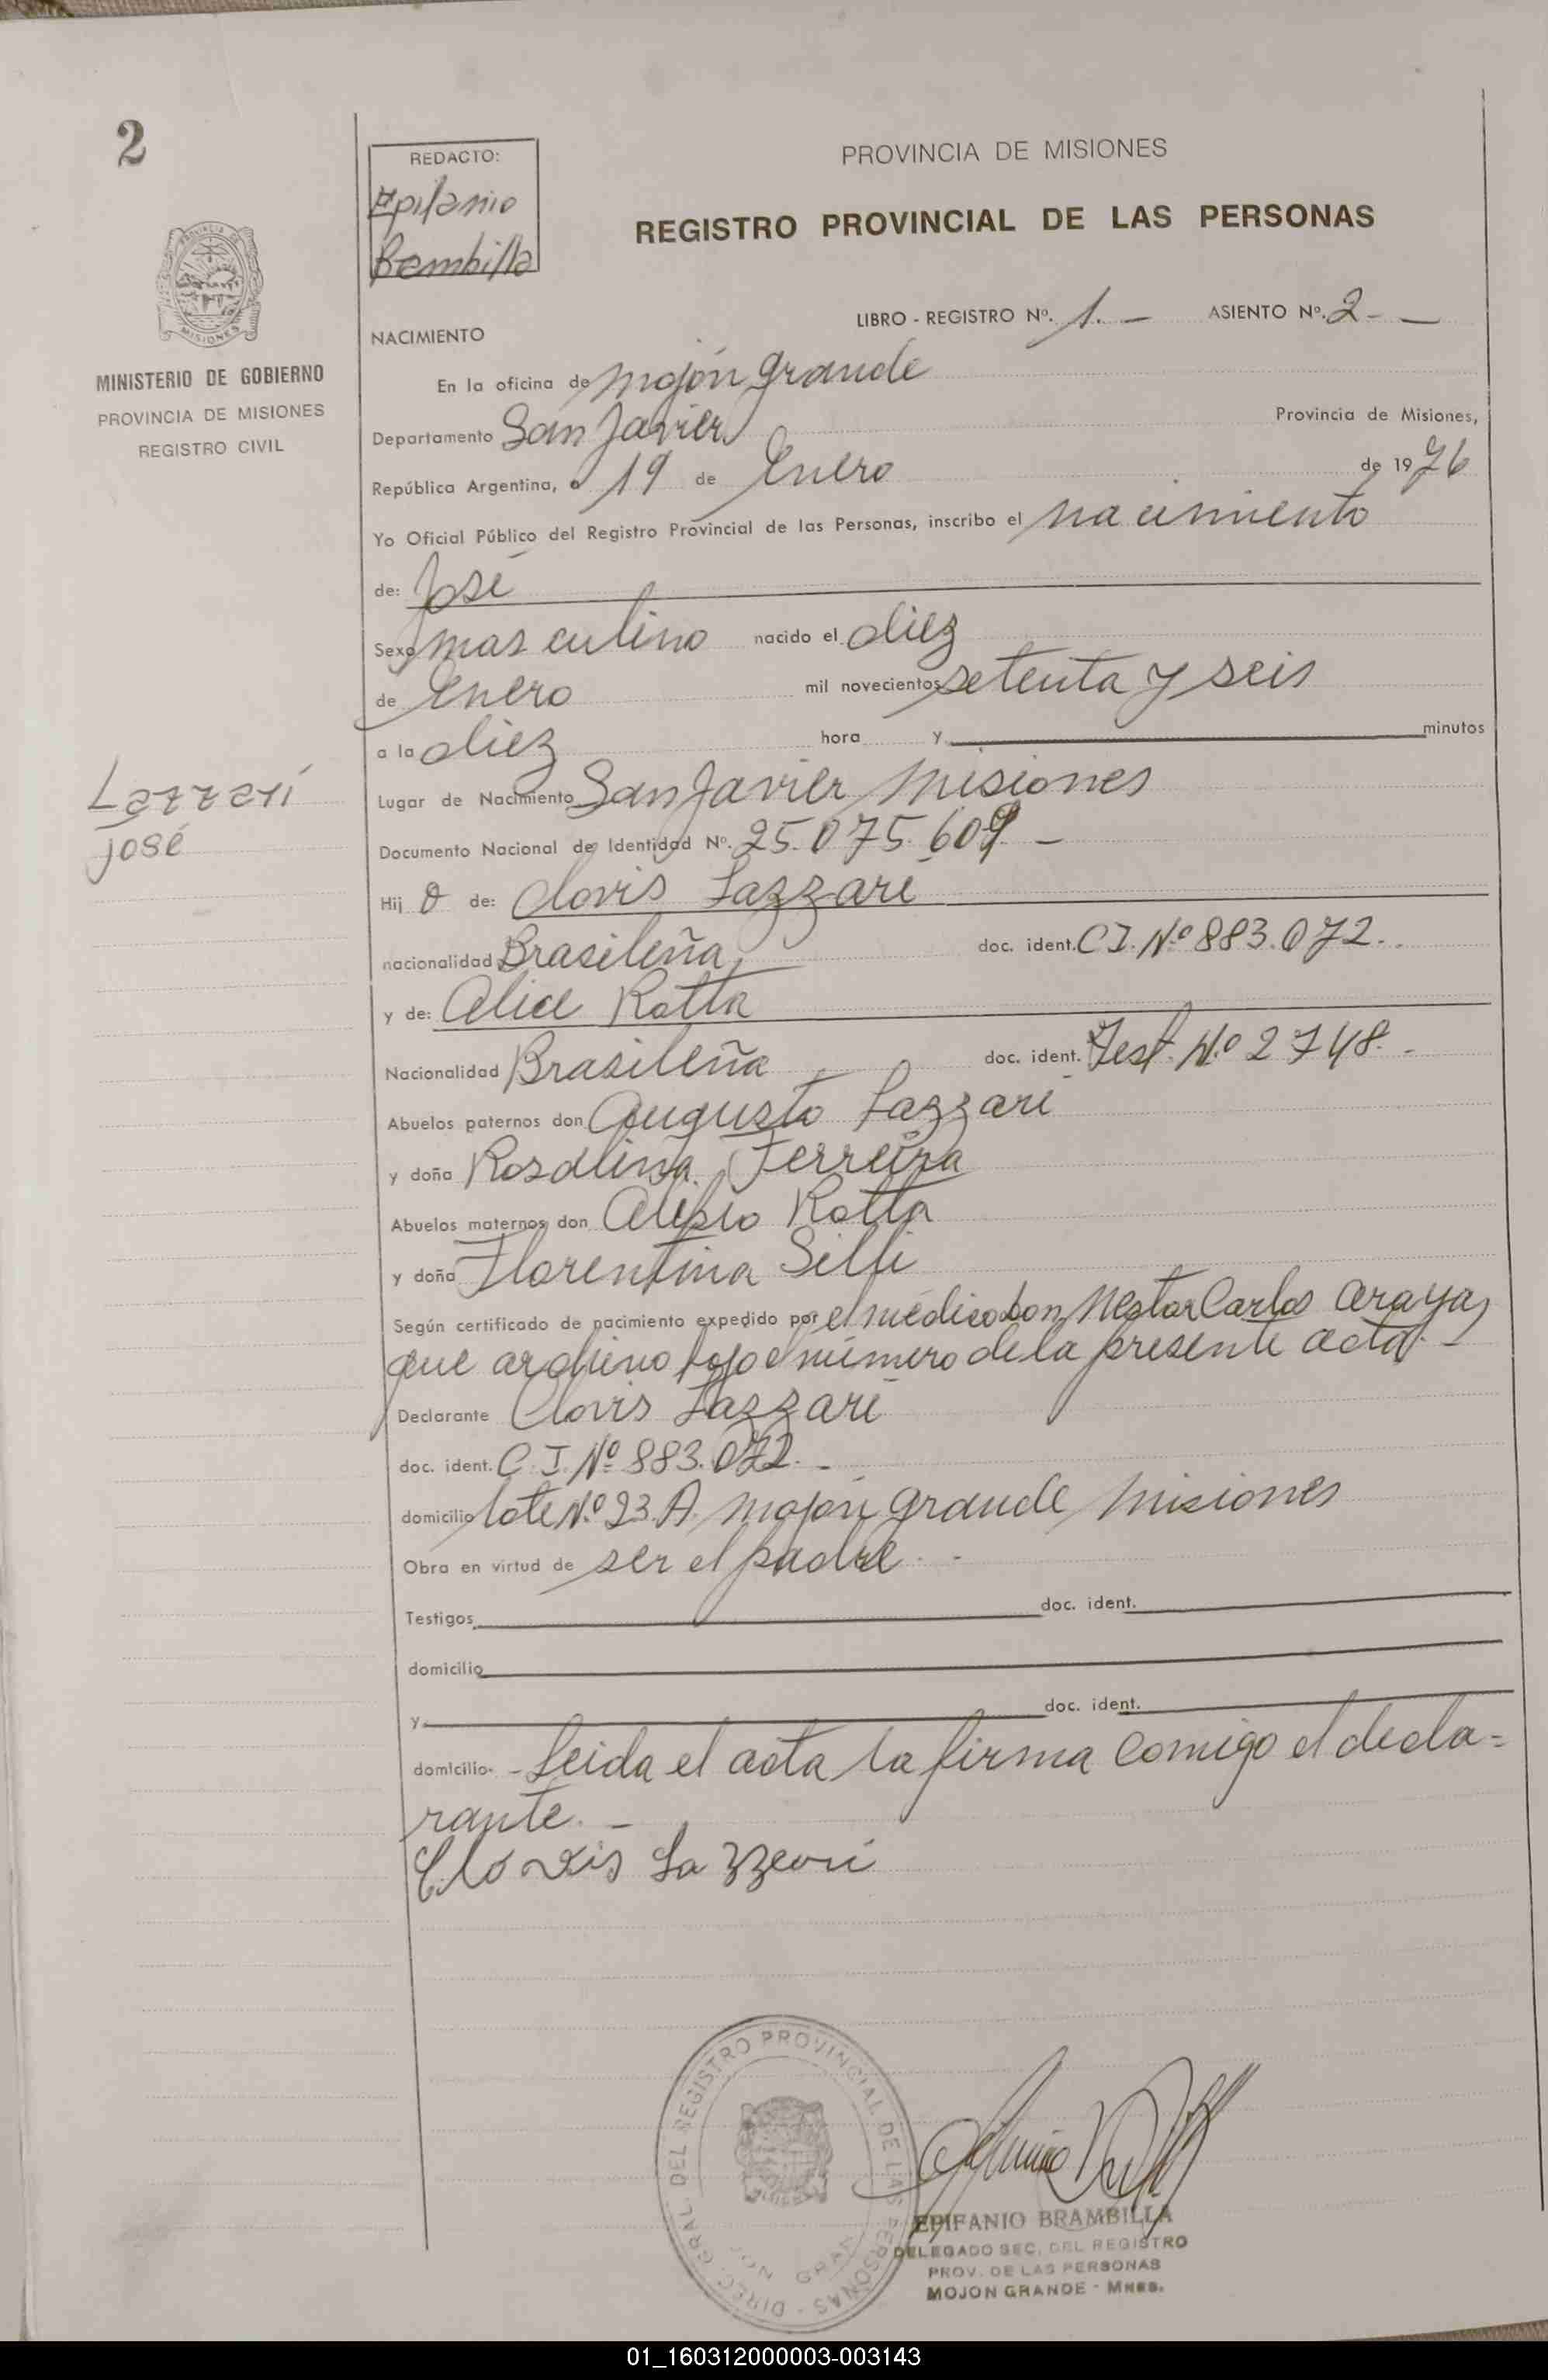 2
REDACTO:
Epifanio
Bembilla
PROVINCIA DE MISIONES
REGISTRO PROVINCIAL DE LAS PERSONAS
PROVINCIA DE
MISIONES
MINISTERIO DE GOBIERNO
PROVINCIA DE MISIONES
REGISTRO CIVIL
LIBRO - REGISTRO Nº. 1. - ASIENTO Nº. 2 - -
NACIMIENTO
En la oficina de mojón grande
Departamento San Javier Provincia de Misiones,
República Argentina, a 19 de Enero de 1976
Yo Oficial Público del Registro Provincial de las Personas, inscribo el nacimiento
de: José
Sexo masculino nacido el diez
de Enero mil novecientos setenta y seis
a la diez hora y minutos
Lazzari
José
Lugar de Nacimiento San Javier Misiones
Documento Nacional de Identidad Nº. 25.075.609 -
Hij o de: Clovis Lazzari
nacionalidad Brasileña doc. ident. C I. Nº 883.072..
y de: Alice Rotta
Nacionalidad Brasileña doc. ident. Test. Nº 2748. -
Abuelos paternos don Augusto Lazzari
y doña Rosalina Ferreira
Abuelos maternos don Rotta
y doña Florentina
Según certificado de nacimiento expedido por el médico don Nestor Carlos Araya,
que archivo bajo el número de la presente acta. -
Declarante Clovis Lazzari
doc. ident. C. I. Nº 883.072. -
domicilio lote Nº 23.A. mojon grande Misiones
Obra en virtud de ser el padre. -
Testigos doc. ident.
domicilio
y doc. ident.
domicilio - Leida el acta la firma comigo el decla=
rante. -
Clóvis Lazzari
DIREC. GRAL. DEL REGISTRO PROVINCIAL DE LAS PERSONAS -
EPIFANIO BRAMBILLA
DELEGADO SEC. DEL REGISTRO
PROV. DE LAS PERSONAS
MOJON GRANDE - Mnes.
01_160312000003-003143